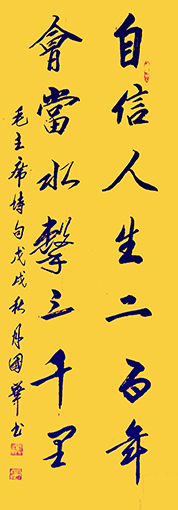 自信人生二百年
會當水擊三千里
毛主席詩句戊戌秋月國華書